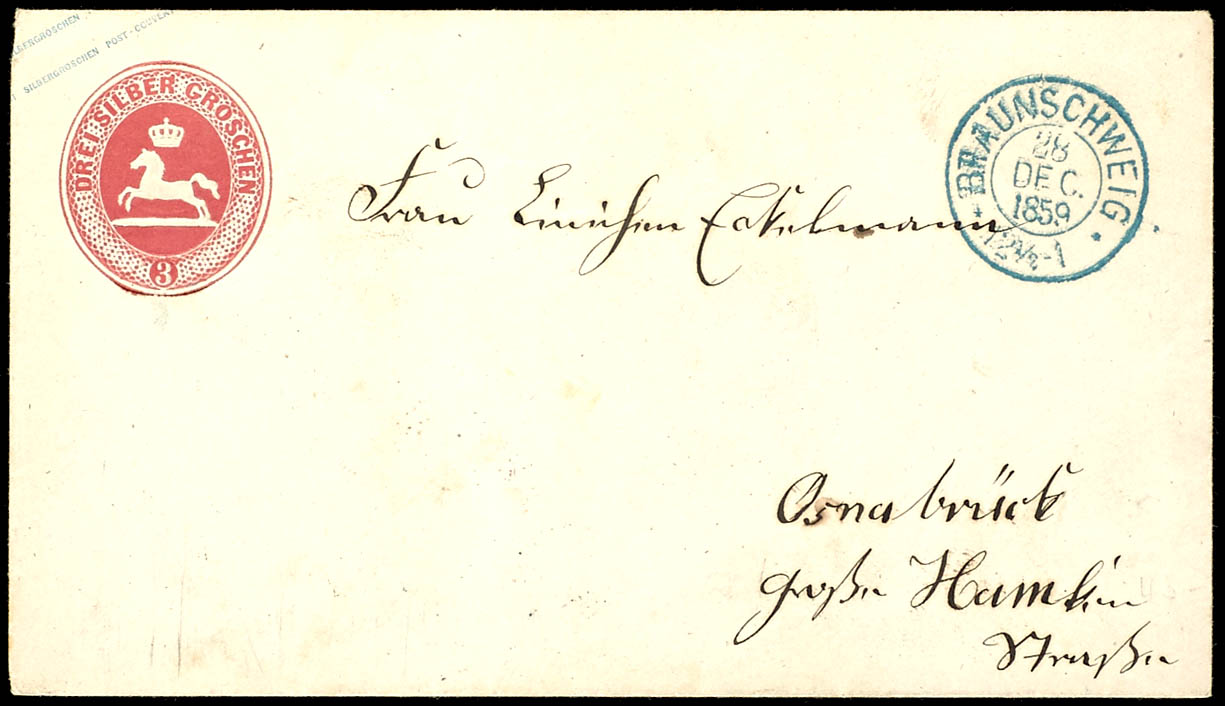 SILBERGROSCHEN
SILBERGROSCHEN POST-COUVERT
DREI SILBER GROSCHEN
3
BRAUNSCHWEIG
28
DEC.
1859
12½-1
Frau Eckelmann
Osnabrück
große
Straße